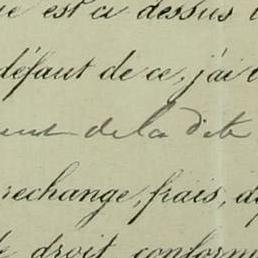 est ci dessus
défaut de ce, j'ai
de la dite
rechange, frais,
droit conformé